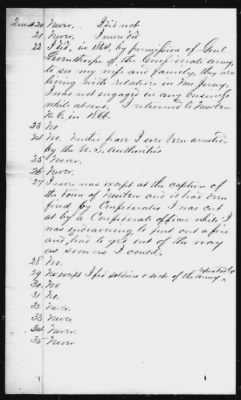 Quest 20 Never. I did not
21 Never. I never did
22 I did, in 1864, by permission of Genl
of the Confederate army,
to see my wife and family, they are
living with relation in New Jersey,
I was not engaged in any business
while absent. I returned to New Bern
N.C, in 1866.
23 No
24 No, neither have I ever been arrested
by the U.S. Authorities
25 Never.
26 Never.
27 I never was except at the capture of
the town of New Bern and it has been
fired by Confederates I was
at by a Confederate officer while I
was endeavoring to put out a fire
and, had to get out of the way
as soon as I could.
28 No.
29 No except I fed soldiers & sick of the army
30 No
31 No.
32 Never.
33 Never
34 Never.
35 Never